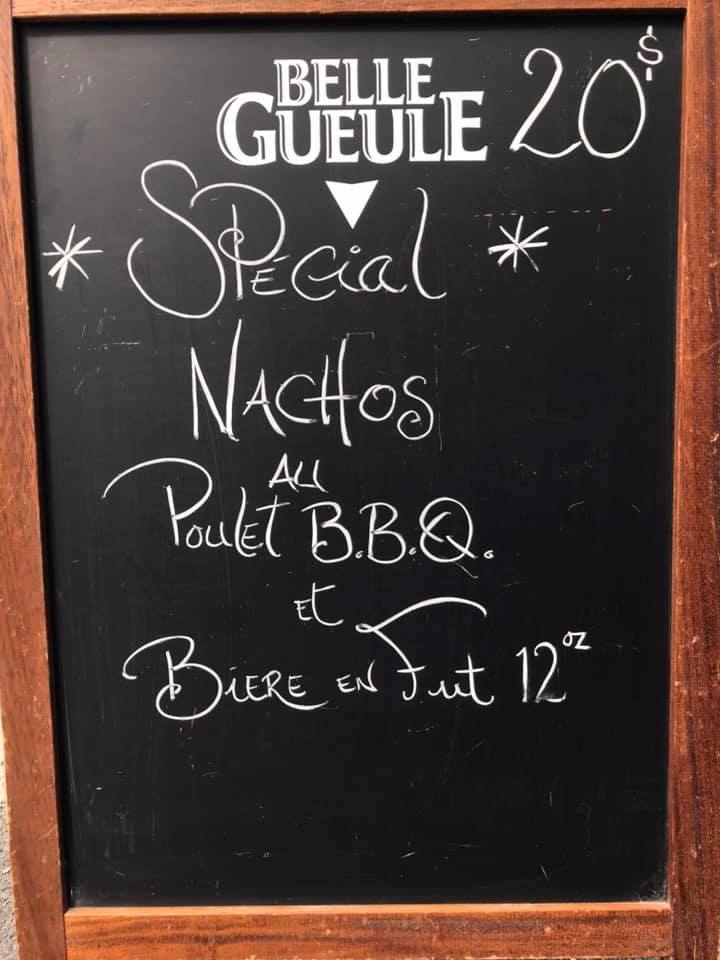 BELLE
GUEULE 20$
* Spécial *
NACHOS
AU
POULET B.B.Q.
et
BIÈRE EN Fut 12oz